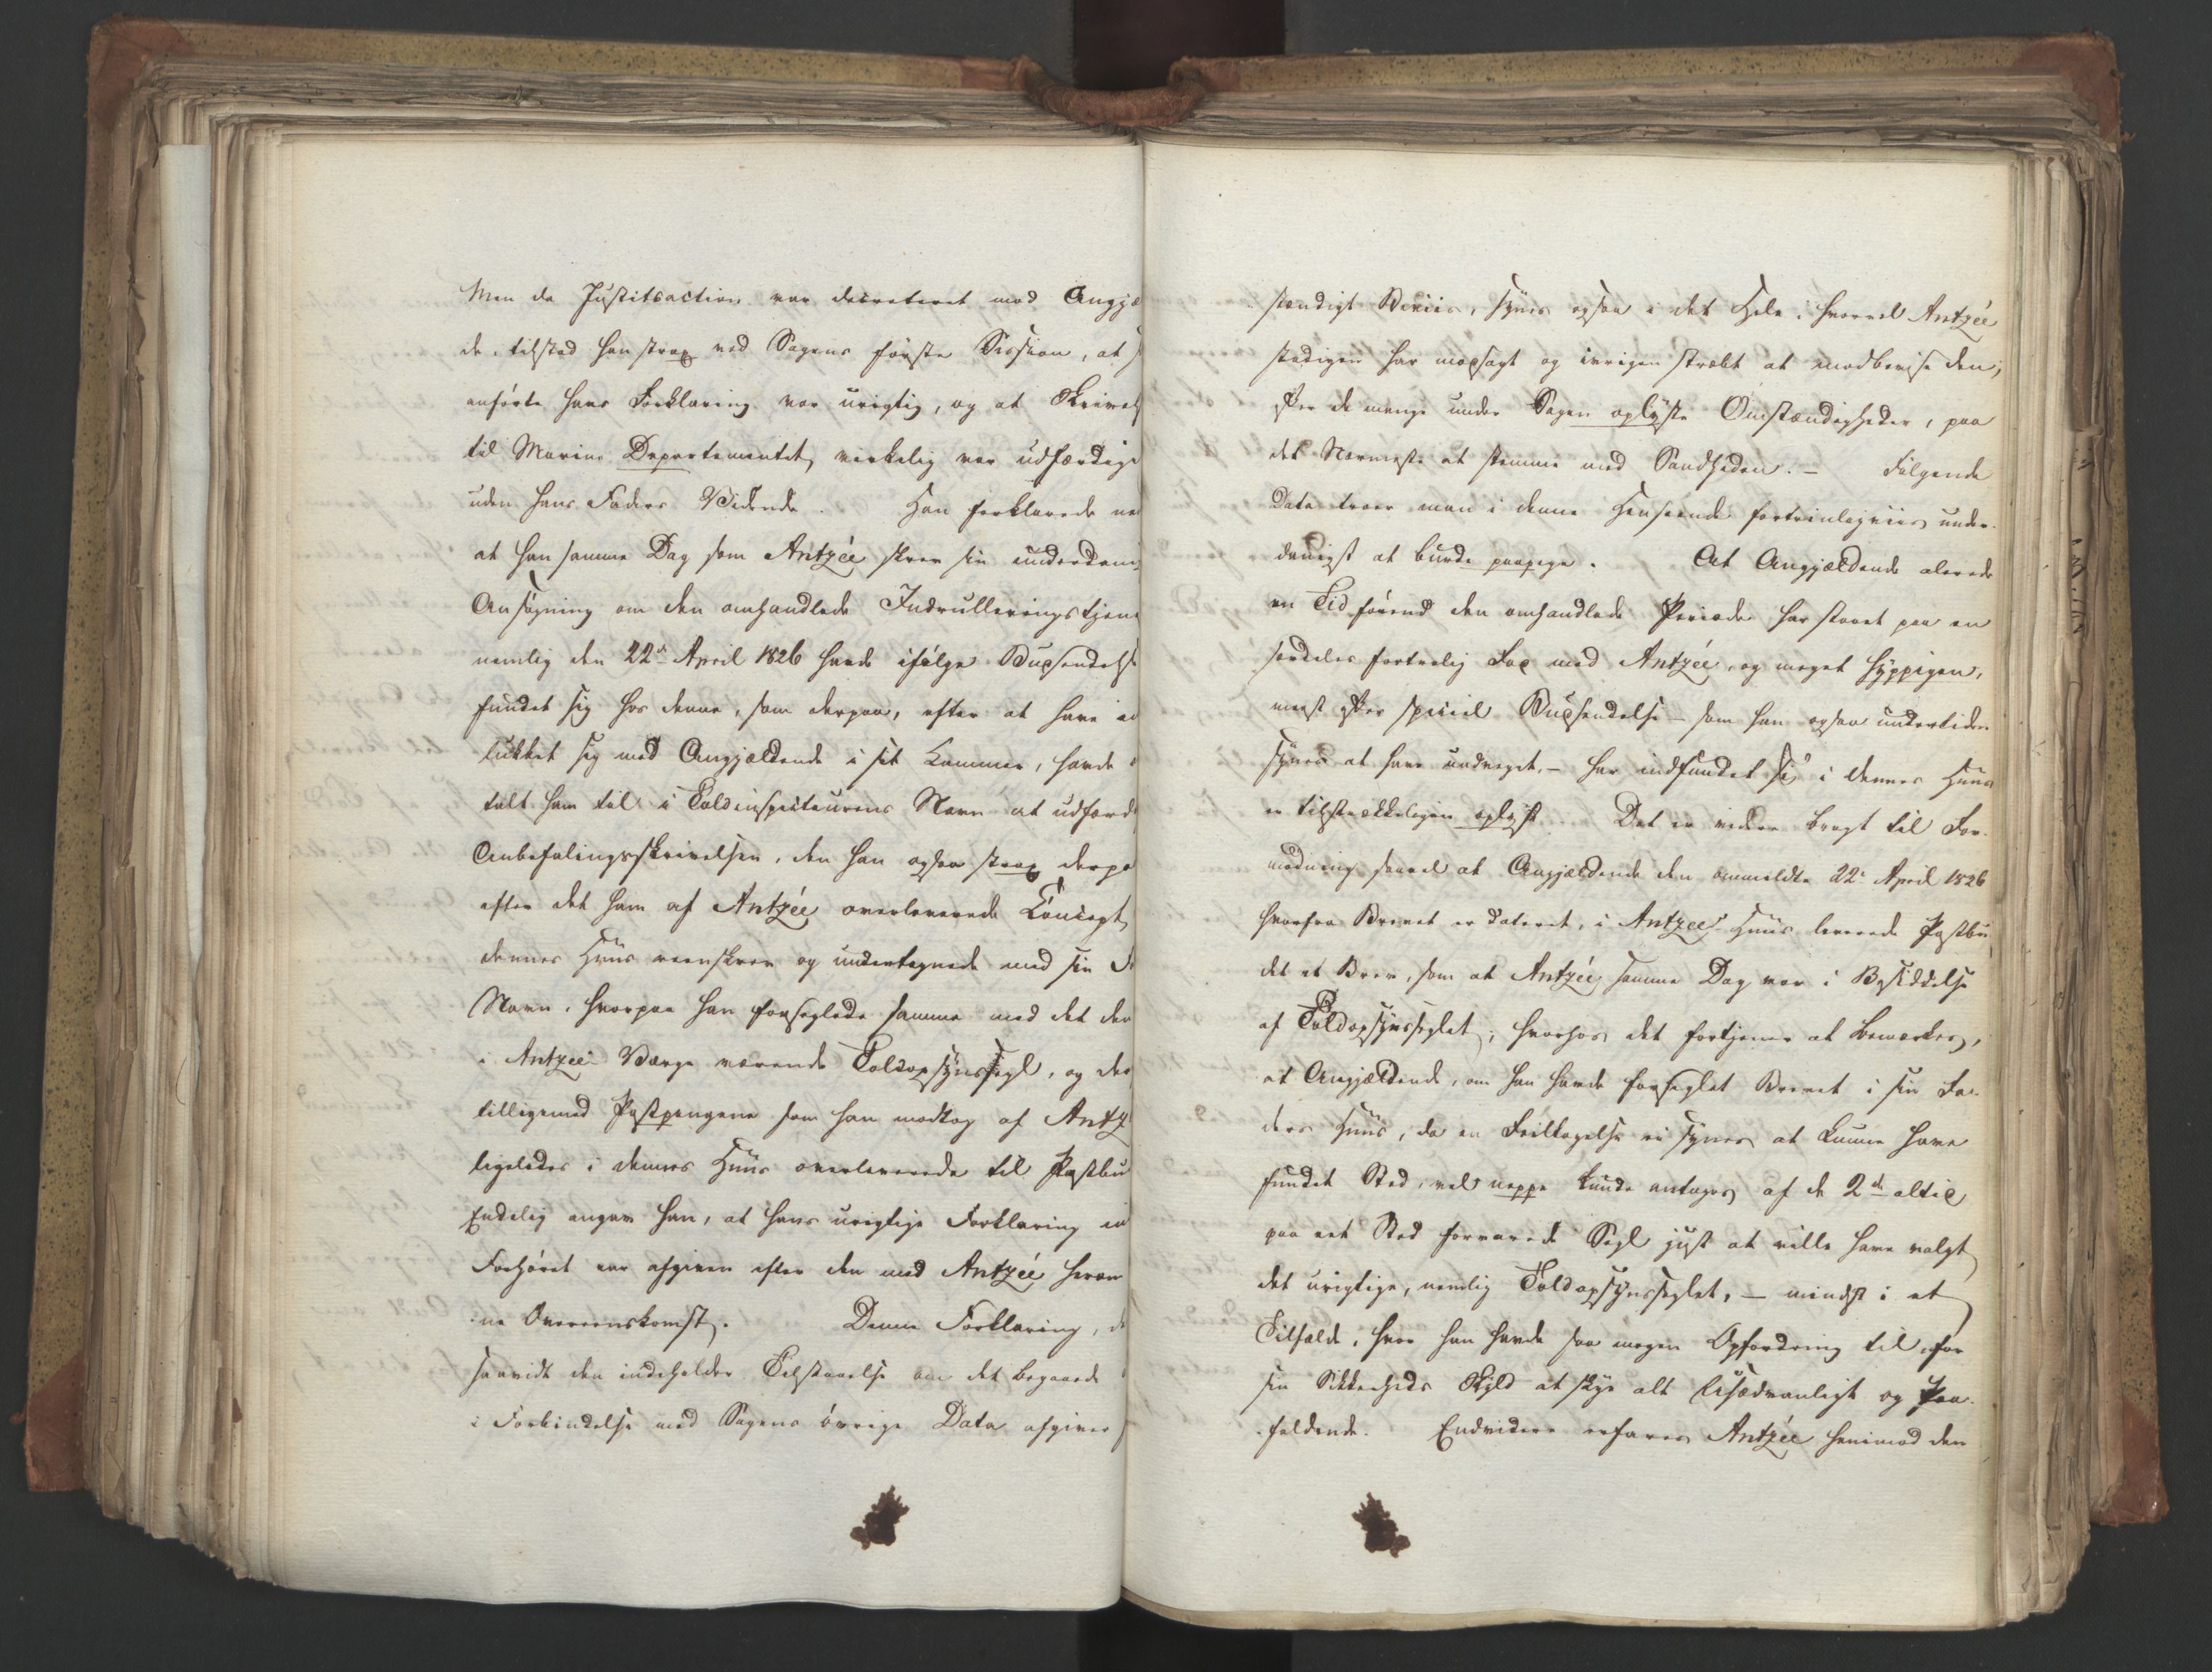 Men da Justitsaction var decreteret mod Angjæ
de, tilstod han strax ved Sagens første Session, at
anførte hans Forklaring var urigtig, og at Skrivels
til Marine Departementet virkelig var udfærdige
uden hans Faders Vidende. Han forklarede
at han samme Dag som Antzée skrev sin underdani
Ansøgning om den omhandlede Indrulleringstjene
nemlig den 22de April 1826 havde ifølge Budsendelse
fundet sig hos denne, som derpaa, efter at have
lukket sig med Angjældende i sit Kammer, havde
talt ham til i Toldinspecteurens Navn at udfærd
Anbefalingsskrivelsen, den han ogsaa strax derpa
efter det ham af Antzée overleverede Concept
dennes Huus reenskrev og undertegnede med sin
Navn, hvorpaa han forseglede samme med det den
i Antzées Værge værende Toldopsynssegl, og der
tilligemed Postpengene som han modtog af Antz
ligeledes i dennes Huus overleverede til Postbu
Endelig angav han, at hans urigtige Forklaring
Forhøret var afgiven efter den med Antzée
ne Overeenskomst. Denne Forklaring,
saavidt den indeholder Tilstaaelse om det begaaede
i Forbindelse med Sagens øvrige Data afgiver
stændigt Beviis, synes ogsaa i det Hele, hvorvel Antzée
stadigen har modsagt og ivrigen stræbt at modbevise den,
efter de mange under Sagen oplyste Omstændigheder, paa
det Nærmeste at stemme med Sandheden. – Følgende
Data troer man i denne Henseende fortrinligviis under-
danigst at burde paapege. At Angjældende alerede
en Tid førend den omhandlede Periode har staaet paa en
særdeles fortrolig Fod med Antzée, og meget hyppigen,
meest efter speciel Budsendelse – som han ogsaa undertiden
synes at have undveget, – har indfundet sig i dennes Huus
er tilstrækkeligen oplyst. Det er videre bragt til For-
modning saavel at Angjældende den ommeldte 22de April 1826
hvorfra Brevet er dateret, i Antzées Huus leverede Postbu
det et Brev, som at Antzée samme Dag var i Besiddelse
af Toldopsynsseglet; hvorhos det fortjener at bemærkes,
at Angjældende, om han havde forseglet Brevet i sin Fa-
ders Huus, da en Feiltagelse ei synes at kunne have
fundet Sted, vel neppe kunde antages af de 2de altid
paa eet Sted forvarede Segl just at ville have valgt
det urigtige, nemlig Toldopsynsseglet, – mindst i et
Tilfælde, hvor han havde saa megen Opfordring til, for
sin Sikkerheds Skyld at skye alt Usædvanligt og Paa-
faldende. Endvidere erfarer Antzée henimod den